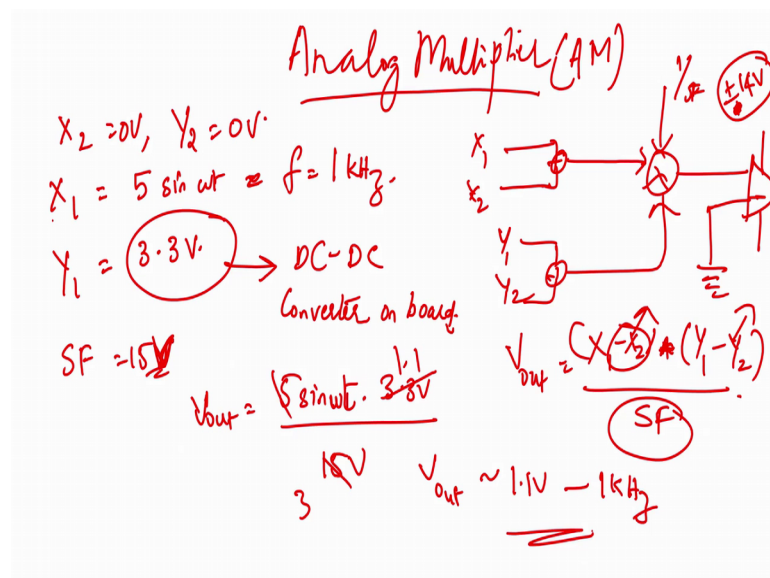 Analog Multiplier (AM)
X₂ = 0V, Y₂ = 0V.
X₁ = 5 sin ωt f = 1 kHz.
Y₁ = 3.3V. → DC-DC
Converter on board.
SF = 15V
Vout = 5 sin ωt . 3.3V 1.1
15V
3
Vout ~ 1.1V – 1KHz
±14V
X₁
X₂
Y₁
Y₂
Vout = (X₁-X₂) * (Y₁-Y₂)
SF